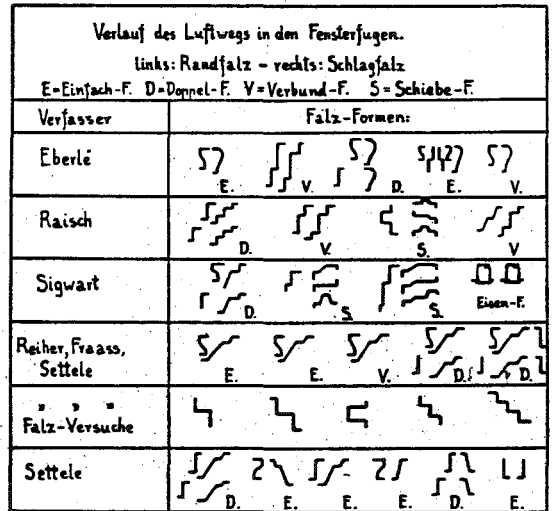 Verlauf des Luftwegs in den Fensterfugen.
links: Randfalz - rechts: Schlagfalz
E=Einfach-F. D=Doppel-F. V=Verbund-F. S=Schiebe-F.
Verfasser Falz-Formen:
Eberlé E. V. D. E. V.
Raisch D. V. S. V
Sigwart D. S. S. Eisen-F.
Reiher, Fraass,
Settele E. E. V. D. D.
" " "
Falz-Versuche
Settele D. E. E. E. D. E.